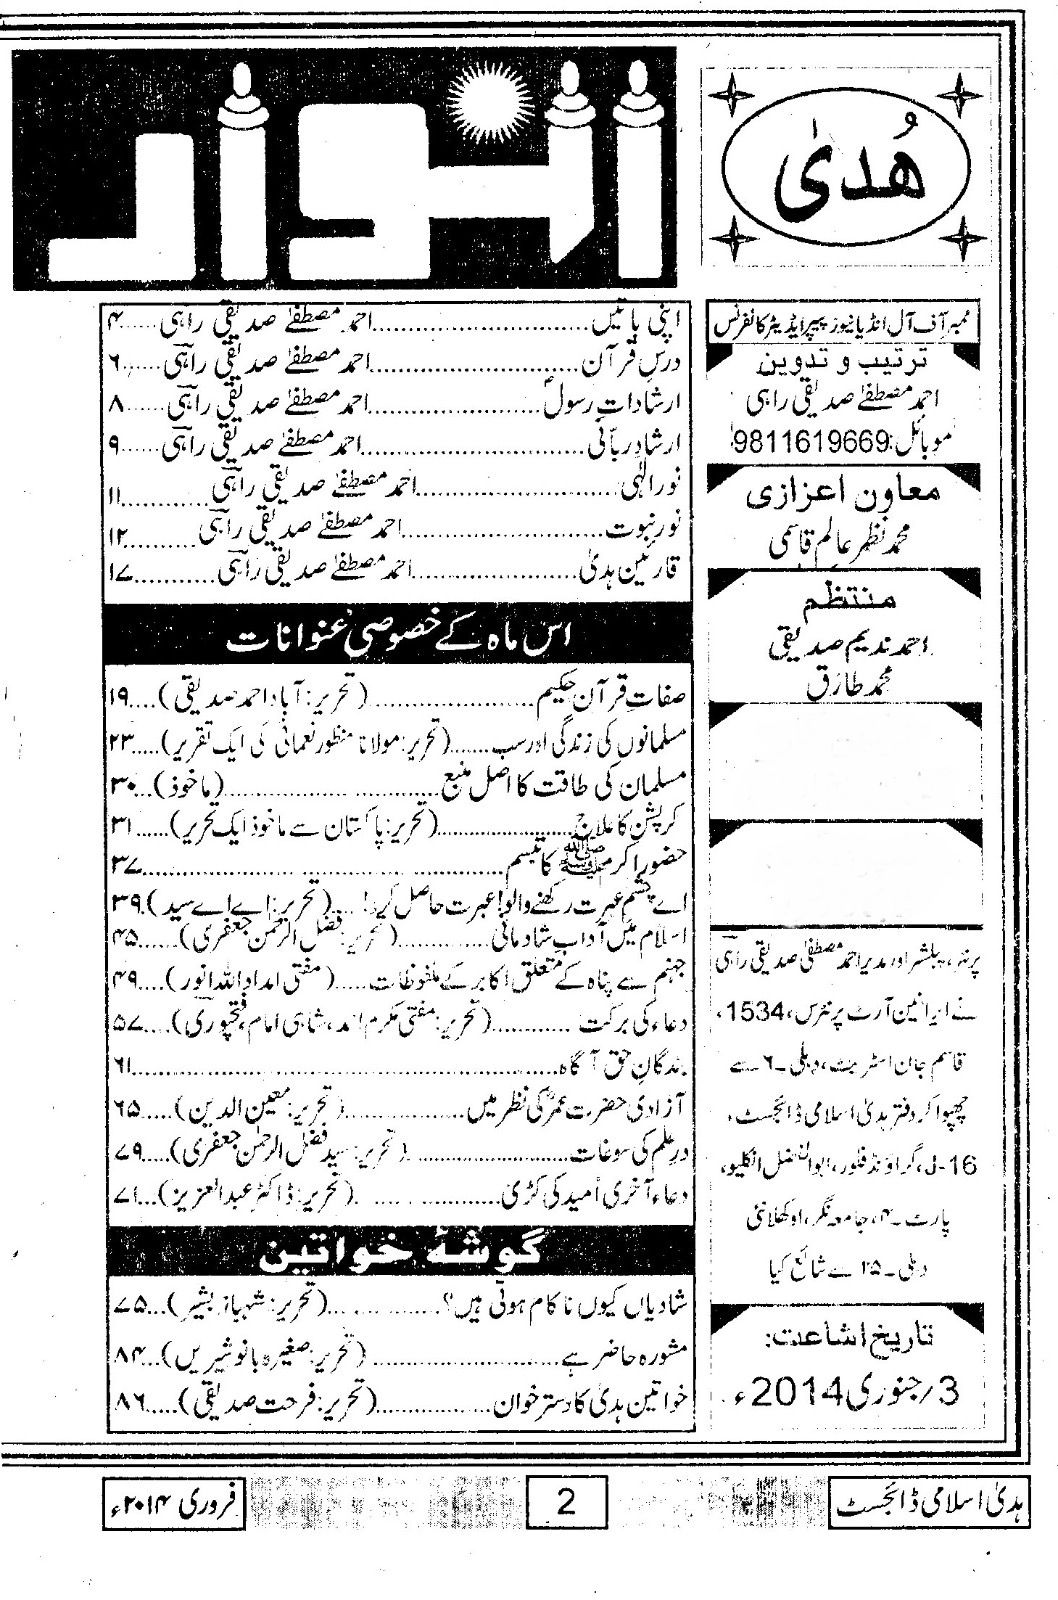 ھُدیٰ
انوار
ممبر آف آل انڈیا نیوز پیپر ایڈیٹر کانفرنس
ترتیب و تدوین
احمد مصطفےٰ صدیقی راہی
موبائل: 9811619669
معاون اعزازی
محمد نظر عالم قاسمی
منتظم
احمد ندیم صدیقی
محمد طارق
پرنٹر، پبلشر اور مدیر احمد مصطفیٰ صدیقی راہی
نے ایرانین آرٹ پرنٹرس، 1534،
قاسم جان اسٹریٹ، دہلی۔۶ سے
چھپوا کر دفتر ہدیٰ اسلامی ڈائجسٹ،
J-16، گراؤنڈ فلور، ابوالفضل انکلیو،
پارٹ۔۴، جامعہ نگر، اوکھلا نئی
دہلی۔۲۵ سے شائع کیا
تاریخ اشاعت:
3/جنوری 2014ء
اپنی باتیں..........احمد مصطفےٰ صدیقی راہی.....۴
درسِ قرآن..........احمد مصطفےٰ صدیقی راہی.....۶
ارشاداتِ رسولؐ..........احمد مصطفےٰ صدیقی راہی.....۸
ارشادِ ربانی..........احمد مصطفےٰ صدیقی راہی.....۹
نورِ الٰہی..........احمد مصطفےٰ صدیقی راہی.....۱۱
نورِ نبوت..........احمد مصطفےٰ صدیقی راہی.....۱۲
قارئین ہدیٰ..........احمد مصطفےٰ صدیقی راہی.....۱۷
اس ماہ کے خصوصی عنوانات
صفاتِ قرآن حکیم..........(تحریر: آباد احمد صدیقی)....۱۹
مسلمانوں کی زندگی اور سب......(تحریر: مولانا منظور نعمانی کی ایک تقریر).....۲۳
مسلمان کی طاقت کا اصل منبع..........(ماخوذ)...۳۰
کرپشن کا علاج..........(تحریر: پاکستان سے ماخوذ ایک تحریر)......۳۱
حضور اکرم ﷺ کا تبسم..........۳۷
اے چشمِ عبرت رکھنے والو! عبرت حاصل کرو!....(تحریر: اے اے سید)..۳۹
اسلام میں آدابِ شادمانی..........(تحریر: فضل الرحمٰن جعفری).....۴۵
جہنم سے پناہ کے متعلق اکابر کے ملفوظات......(مفتی امداد اللہ انور)....۴۹
دعاء کی برکت..........(تحریر: مفتی مکرم احمد، شاہی امام، فتحپوری)....۵۷
بندگانِ حق آگاہ..........۶۱
آزادی حضرت عمرؓ کی نظر میں..........(تحریر: معین الدین).....۶۵
درِ علم کی سوغات..........(تحریر: سید فضل الرحمٰن جعفری).....۷۹
دعاء آخری اُمید کی کڑی..........(تحریر: ڈاکٹر عبدالعزیز)....۷۱
گوشۂ خواتین
شادیاں کیوں ناکام ہوتی ہیں؟..........(تحریر: شہباز بشیر)...۷۵
مشورہ حاضر ہے..........(تحریر: صغیرہ بانو شیریں)....۸۴
خواتین ہدیٰ کا دسترخوان..........(تحریر: فرحت صدیقی).....۸۶
ہدیٰ اسلامی ڈائجسٹ
2
فروری ۲۰۱۴ء